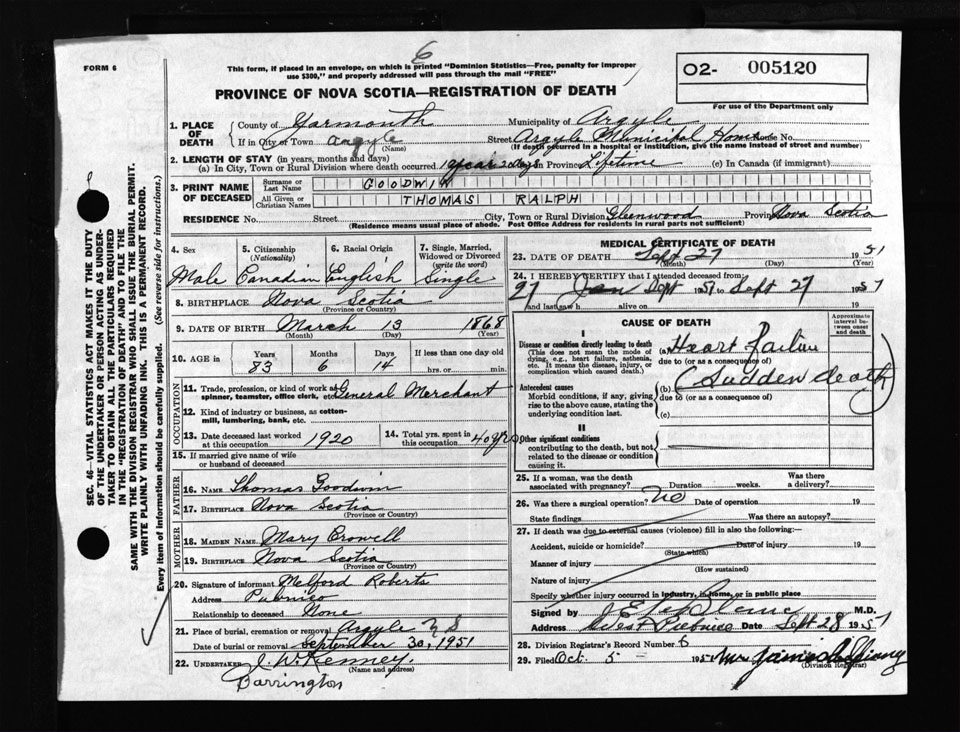 6
FORM 6
This form, if placed in an envelope, on which is printed "Dominion Statistics—Free, penalty for improper
use $300," and properly addressed will pass through the mail "FREE"
O2- 005120
For use of the Department only
PROVINCE OF NOVA SCOTIA—REGISTRATION OF DEATH
1. PLACE OF DEATH
County of Yarmouth Municipality of Argyle
If in City or Town Argyle (Name) Street Argyle Municipal Home House No.
(If death occurred in a hospital or institution, give the name instead of street and number)
2. LENGTH OF STAY (in years, months and days)
(a) In City, Town or Rural Division where death occurred 1 year 2 days In Province Lifetime (c) In Canada (if immigrant)
3. PRINT NAME OF DECEASED
Surname or Last Name GOODWIN
All Given or Christian Names THOMAS RALPH
RESIDENCE No. Street City, Town or Rural Division Glenwood Province Nova Scotia
(Residence means usual place of abode. Post Office Address for residents in rural parts not sufficient)
4. Sex
Male
5. Citizenship (Nationality)
Canadian
6. Racial Origin
English
7. Single, Married, Widowed or Divorced (write the word)
Single
8. BIRTHPLACE Nova Scotia
(Province or Country)
9. DATE OF BIRTH March 13 1868
(Month) (Day) (Year)
10. AGE in Years Months Days If less than one day old
83 6 14 hrs. or min.
OCCUPATION
11. Trade, profession, or kind of work as spinner, teamster, office clerk, etc. General Merchant
12. Kind of industry or business, as cotton-mill, lumbering, bank, etc.
13. Date deceased last worked at this occupation 1920
14. Total yrs. spent in this occupation 40 yrs
15. If married give name of wife or husband of deceased
FATHER
16. NAME Thomas Goodwin
17. BIRTHPLACE Nova Scotia
(Province or Country)
MOTHER
18. MAIDEN NAME Mary Crowell
19. BIRTHPLACE Nova Scotia
(Province or Country)
20. Signature of informant Melford Roberts
Address Pubnico
Relationship to deceased None
21. Place of burial, cremation or removal Argyle N S
Date of burial or removal September 30, 1951
22. UNDERTAKER J. W. Kenney.
(Name and address)
Barrington
MEDICAL CERTIFICATE OF DEATH
23. DATE OF DEATH Sept 27 1951
(Month) (Day) (Year)
24. I HEREBY CERTIFY that I attended deceased from:
27 Sept 1951 to Sept 27 1951
and last saw h alive on 19
CAUSE OF DEATH
Approximate interval between onset and death
I
Disease or condition directly leading to death
(This does not mean the mode of dying, e.g., heart failure, asthenia, etc. It means the disease, injury, or complication which caused death.)
(a) Heart Failure
due to (or as a consequence of)
Antecedent causes
Morbid conditions, if any, giving rise to the above cause, stating the underlying condition last.
(b) (Sudden death)
due to (or as a consequence of)
(c)
II
Other significant conditions
contributing to the death, but not related to the disease or condition causing it.
25. If a woman, was the death associated with pregnancy? Duration weeks. Was there a delivery?
26. Was there a surgical operation? no Date of operation 19
State findings Was there an autopsy?
27. If death was due to external causes (violence) fill in also the following:—
Accident, suicide or homicide? (State which) Date of injury 19
Manner of injury (How sustained)
Nature of injury
Specify whether injury occurred in industry, in home, or in public place
Signed by M.D.
Address West Pubnico Date Sept 28 1951
28. Division Registrar's Record Number 6
29. Filed Oct. 5 - 1951
(Division Registrar)
SEC. 46—VITAL STATISTICS ACT MAKES IT THE DUTY
OF THE UNDERTAKER OR PERSON ACTING AS UNDER-
TAKER TO OBTAIN ALL THE PARTICULARS REQUIRED
IN THE "REGISTRATION OF DEATH" AND TO FILE THE
SAME WITH THE DIVISION REGISTRAR WHO SHALL ISSUE THE BURIAL PERMIT.
WRITE PLAINLY WITH UNFADING INK. THIS IS A PERMANENT RECORD.
Every item of information should be carefully supplied. (See reverse side for instructions.)